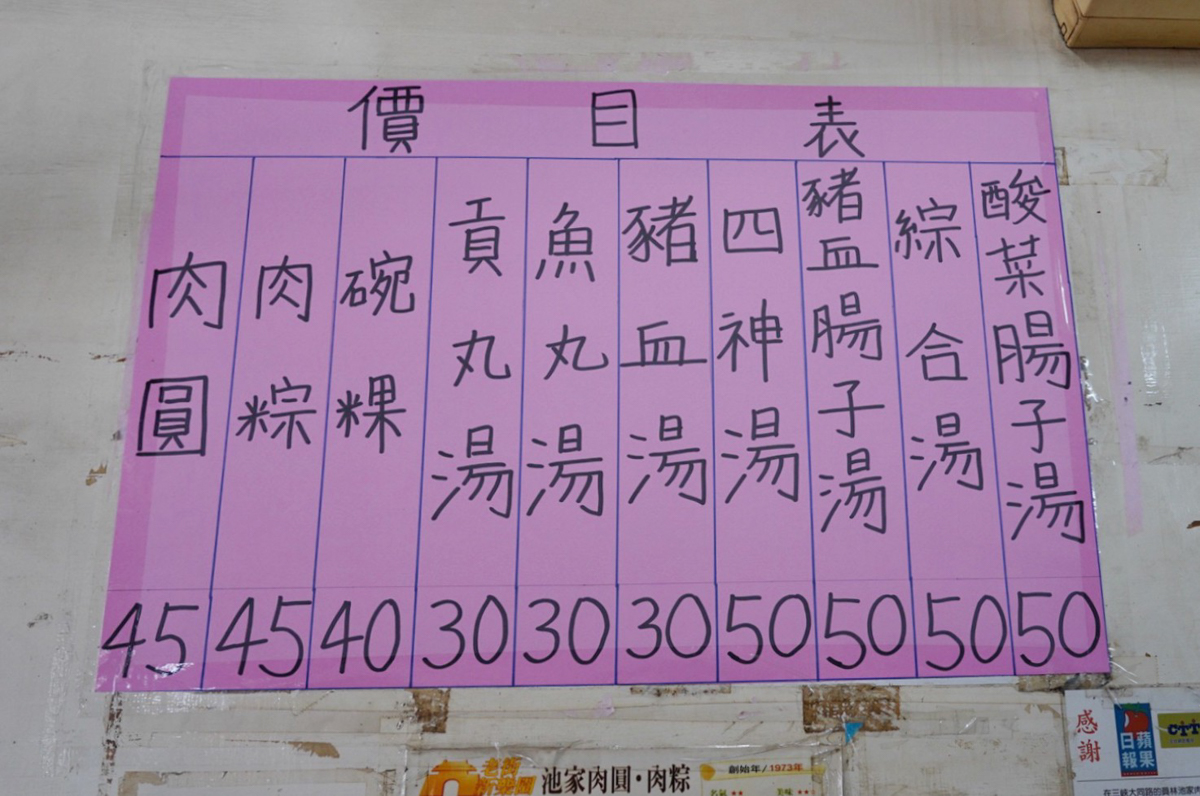 價目表
肉圓 45
肉粽 45
碗粿 40
貢丸湯 30
魚丸湯 30
豬血湯 30
四神湯 50
豬血腸子湯 50
綜合湯 50
酸菜腸子湯 50
池家肉圓·肉粽
創始年/1973年
名氣★★
美味★★
感謝
蘋果日報
在三峽大同路的員林池家肉